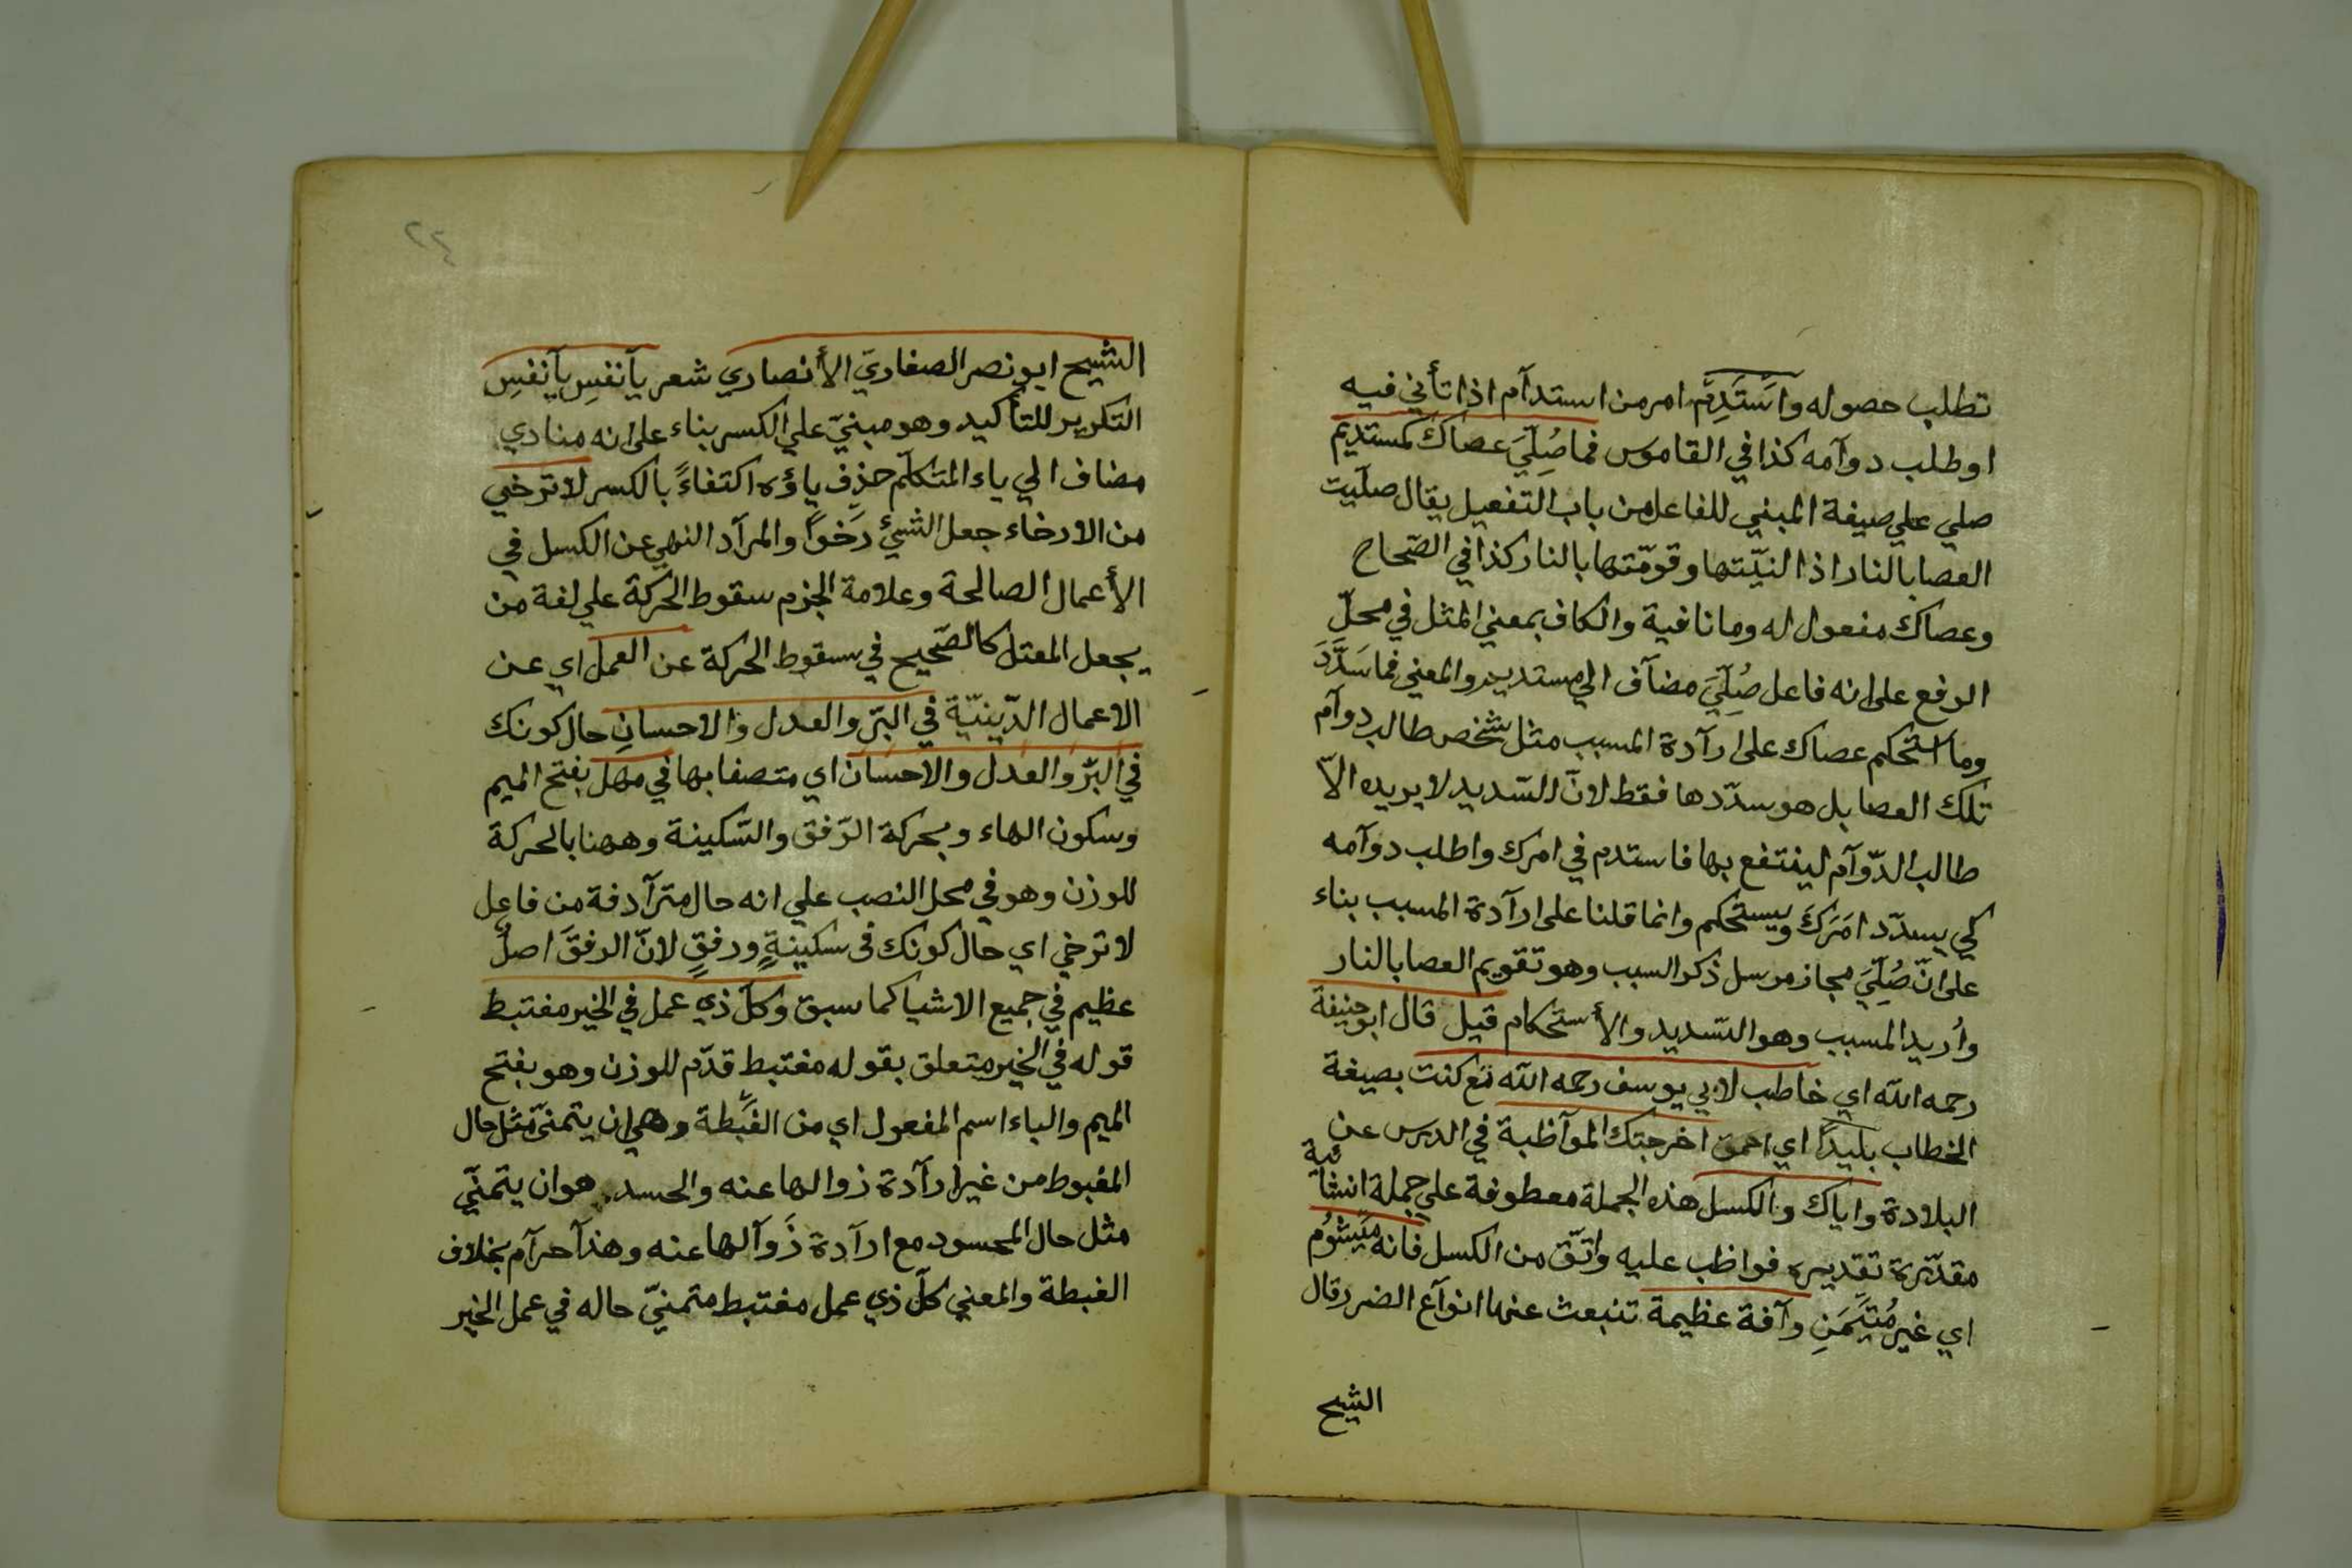 تطلب حصوله واَسْتَدِمْ امر من استدآم اذا تأني فيه
او طلب دوآمه كذا في القاموس فما صُلِّيَ عصاك كمستديم
صلي علي صيغة المبني للفاعل من باب التفعيل يقال صلّيت
العصا بالنار اذا لنيّتها وقوّمتها بالنار كذا في الصّحاح
وعصاك مفعول له وما نافية والكاف بمعني المثل في محلّ
الرفع علي انه فاعل صُلِّيَ مضآف الي مستديم والمعني فما سَدَّدَ
وما استحكم عصاك علي ارآدة المسبب مثل شخص طالب دوآم
تلك العصا بل هو سدّدها فقط لانّ السّديد لا يريده الاّ
طالب الدّوآم لينتفع بها فاستدم في امرك واطلب دوآمه
كي يسدّد امَرَكَ ويستحكم وانما قلنا علي ارآدة المسبب بناء
علي انّ صُلِّيَ مجاز مرسل ذكر السبب وهو تقويم العصا بالنار
واُريد المسبب وهو التسديد والأستحكام قيل قال ابو حنيفة
رحمه الله اي خاطب لابي يوسف رحمه الله تع كنت بصيغة
الخطاب بليداً اي احمق اخرجتك الموآظبة في الدرس عن
البلادة واياك والكسل هذه الجملة معطوفة علي جملة انشآئية
مقدّرة تقديره فواظب عليه واتّق من الكسل فانه ميشُوُم
اي غير مُتَيَمَّنٍ وآفة عظيمة تنبعث عنها انوآع الضرر قال
الشيخ
٢٤
الشيخ ابو نصر الصفاريّ الأنصاري شعر يآنفسِ يآنفسِ
التكرير للتأكيد وهو مبنيّ علي الكسر بناء علي انه منادي
مضاف الي ياء المتكلّم حذِف ياؤه اكتفاءً بالكسر لا ترخي
من الارخاء جعل الشئ رَخواً والمرآد النهي عن الكسل في
الأعمال الصالحة وعلامة الجزم سقوط الحركة علي لغة من
يجعل المعتل كالصّحيح في سقوط الحركة عن العمل اي عن
الاعمال الدّينيّة في البرّ والعدل والاحسانِ حال كونك
في البرّ والعدل والاحسان اي متصفا بها في مهل بفتح الميم
وسكون الهاء وبحركة الرّفق والسّكينة وههنا بالحركة
للوزن وهو في محل النصب علي انه حال مترآدفة من فاعِل
لا ترخي اي حال كونك فى سكينةٍ ورفقٍ لانّ الرفقَ اصلٌ
عظيم في جميع الاشيا كما سبق وكلّ ذي عمل في الخير مغتبط
قوله في الخير متعلق بقوله مغتبط قدّم للوزن وهو بفتح
الميم والباء اسم المفعول اي من الغبطة وهي ان يتمنّي مثل حال
المغبوط من غير ارآدة زوالها عنه والحسد هو ان يتمنّي
مثل حال المحسود مع ارآدة زَوآلها عنه وهذا حرآم بخلاف
الغبطة والمعني كلّ ذي عمل مغتبط متمنيّ حاله في عمل الخير